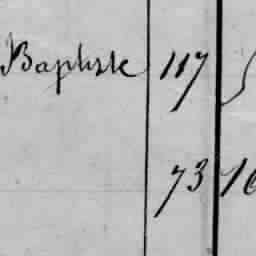 Baptiste 117
73 16